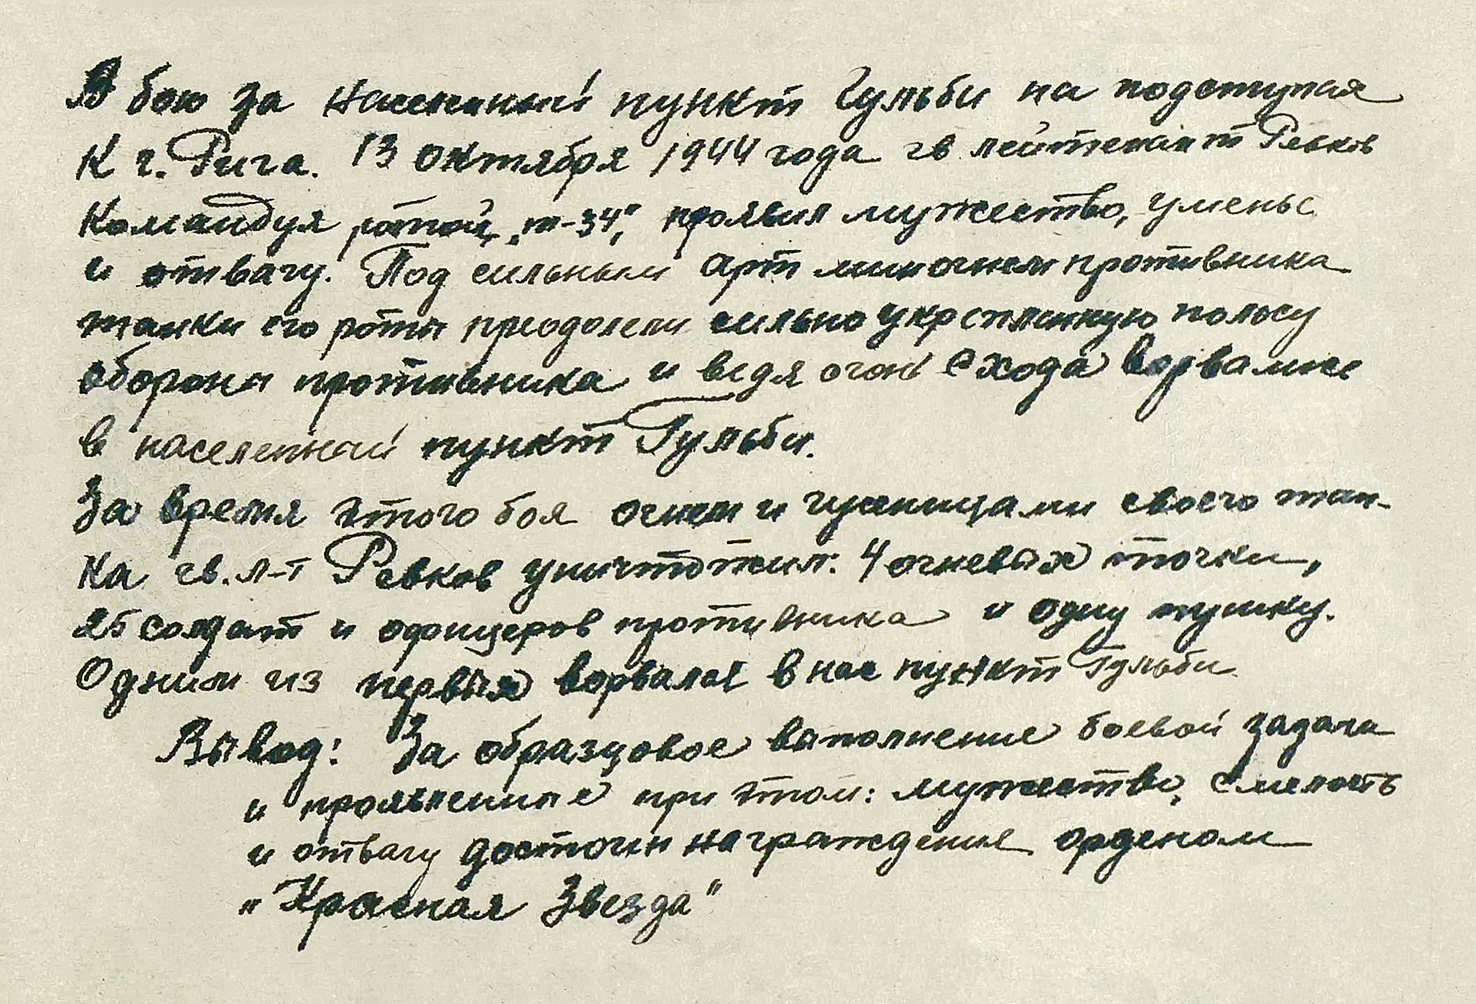 В бою за населенный пункт Гульби на подступах
К г. Рига. 13 октября 1944 года гв лейтенант Ревков
Командуя ротой, „т-34", проявил мужество, уменье
и отвагу. Под сильным арт мин огнем противника
танки его роты преодолели сильно укрепленную полосу
обороны противника и ведя огонь с хода ворвались
в населенный пункт Гульби.
За время этого боя огнем и гусеницами своего тан-
ка гв. л-т Ревков уничтожил: 4 огневых точки,
25 солдат и офицеров противника и одну пушку.
Одним из первых ворвался в нас пункт Гульби
Вывод: За образцовое выполнение боевой задачи
и проявленные при этом: мужество, смелость
и отвагу достоин награждения орденом
„Красная Звезда"